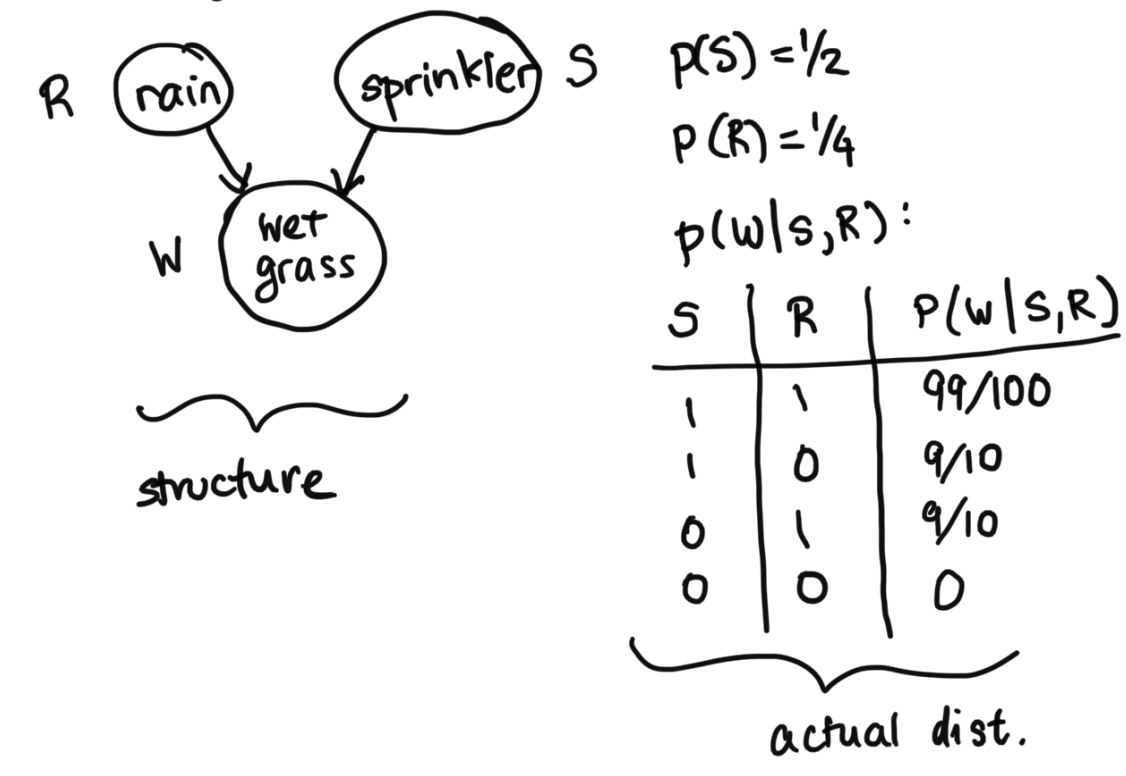 R rain sprinkler S
wet
W grass
structure
p(S) = 1/2
P(R) = 1/4
p(W|S,R):
S R P(W|S,R)
1 1 99/100
1 0 9/10
0 1 9/10
0 0 0
actual dist.